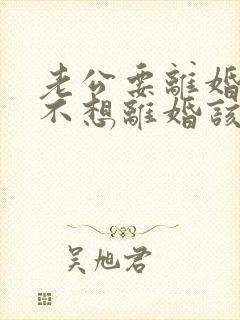 老公要離婚
不想離婚該
吳旭君